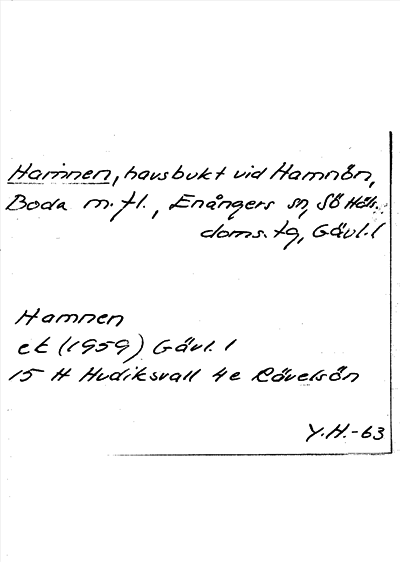 Hamnen, havsbukt vid Hamnön,
Boda m.fl., Enångers sn, Sö Häls.
doms. tg, Gävl.l
Hamnen
ek (1959) Gävl. l
15 H Hudiksvall 4e Rävelsön
Y.H.-63